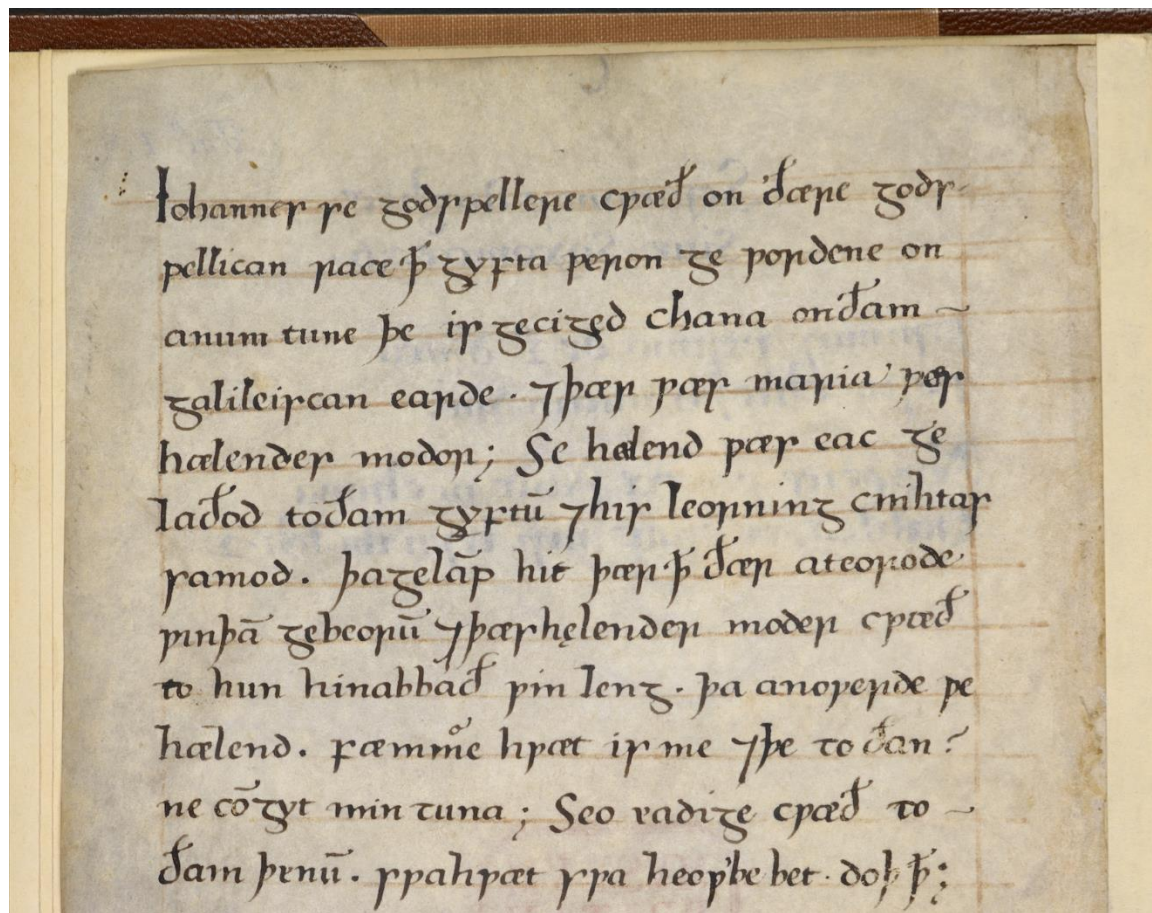 Iohannes se godspellere cƿæð on ðære gods-
pellican race ꝥ gyfta ƿeron ge ƿordene on
anum tune þe is geciged chana onðam ~
galileiscan earde. ⁊þær ƿæs maria þæs
hælendes modor; Se hælend ƿæs eac ge
laðod toðam gyftū ⁊his leorning cnihtas
samod. þagelāp hit þær ꝥ ðær ateorode
ƿinþā gebeorū ⁊þæshęlenden moder cƿæð
to hun hinabbað ƿin leng. þa anoƿerde se
hælend. hƿæt is me ⁊þe to ðan?
ne cō gyt min tuna; Seo eadige cƿæð to ~
ðam þenū. sƿahƿæt sƿa heoƿ be bet. doþ ꝥ;